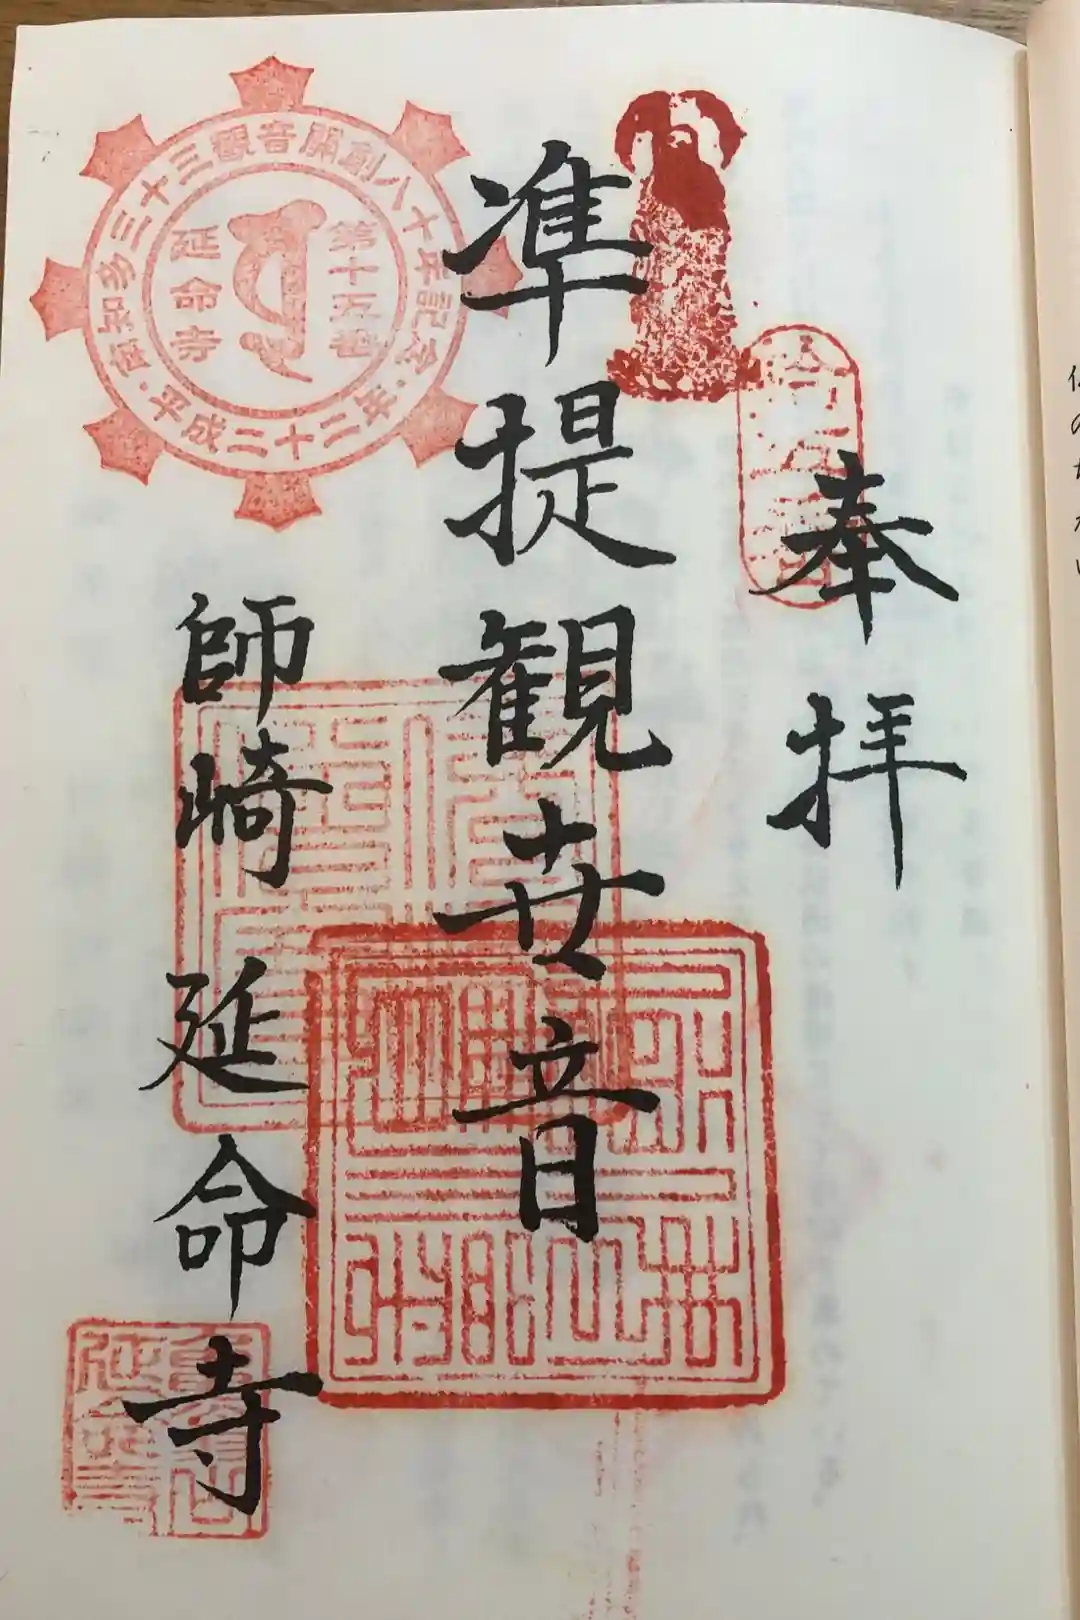 奉拝
準提観世音
師崎延命寺
南知多三十三観音開創八十年記念・平成二十二年・
第十五番
延命寺